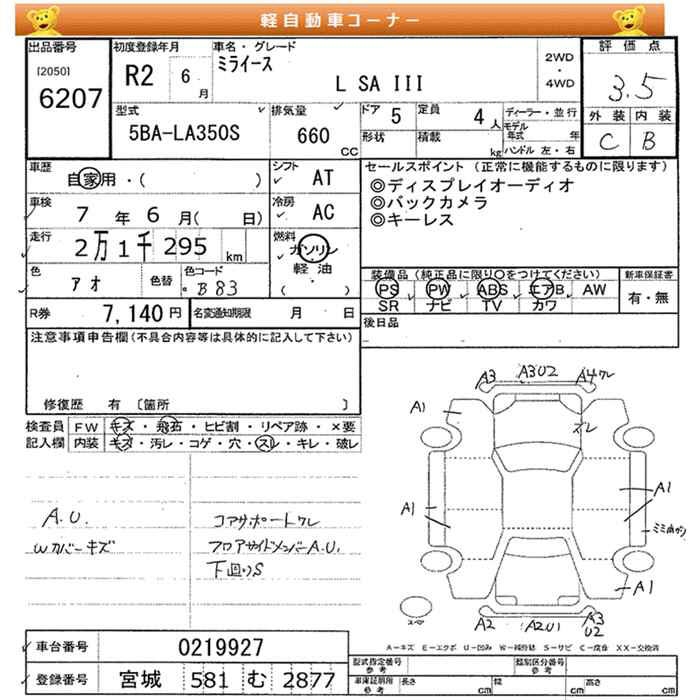 軽自動車コーナー
出品番号
[2050]
6207
初度登録年月
R2 6月
車名・グレード
ミライース
L SA III
2WD
・
4WD
評価点
3.5
外装 内装
C B
型式
5BA-LA350S
排気量
660
CC
ドア 5
定員 4人
形状
積載 kg
ディーラー・並行
モデル年式 年
ハンドル 左・右
車歴
自家用・( )
シフト
AT
車検
7年6月( 日)
冷房
AC
走行
2万1千295km
燃料
ガソリン
軽油
( )
色
アオ
色替
色コード
B83
R券
7,140円
名変通知期限 月 日
セールスポイント(正常に機能するものに限ります)
◎ディスプレイオーディオ
◎バックカメラ
◎キーレス
装備品(純正品に限り○をつけてください)
PS PW ABS エアB AW
SR ナビ TV カワ
新車保証書
有・無
後日品
注意事項申告欄(不具合内容等は具体的に記入して下さい)
修復歴 有 〔箇所 〕
検査員記入欄
FW キズ・飛石・ヒビ割・リペア跡・×要
内装 キズ・汚レ・コゲ・穴・スレ・キレ・破レ
A.U.
Wカバーキズ
コアサポートクレ
フロアサイドメンバーA.U.
下廻りS
A3 A3U2 A4クレ
A1
ズレ
A1
A1
ミミ曲がり
A1
スペア
A2 A2U1 A3
U2
A-キズ E-エクボ U-凹み W-補修跡 S-サビ C-腐食 XX-交換済
車台番号
0219927
登録番号
宮城 581 む 2877
型式指定番号
参考
類別区分番号
参考
車庫証明用
参考
長さ cm
幅 cm
高さ cm